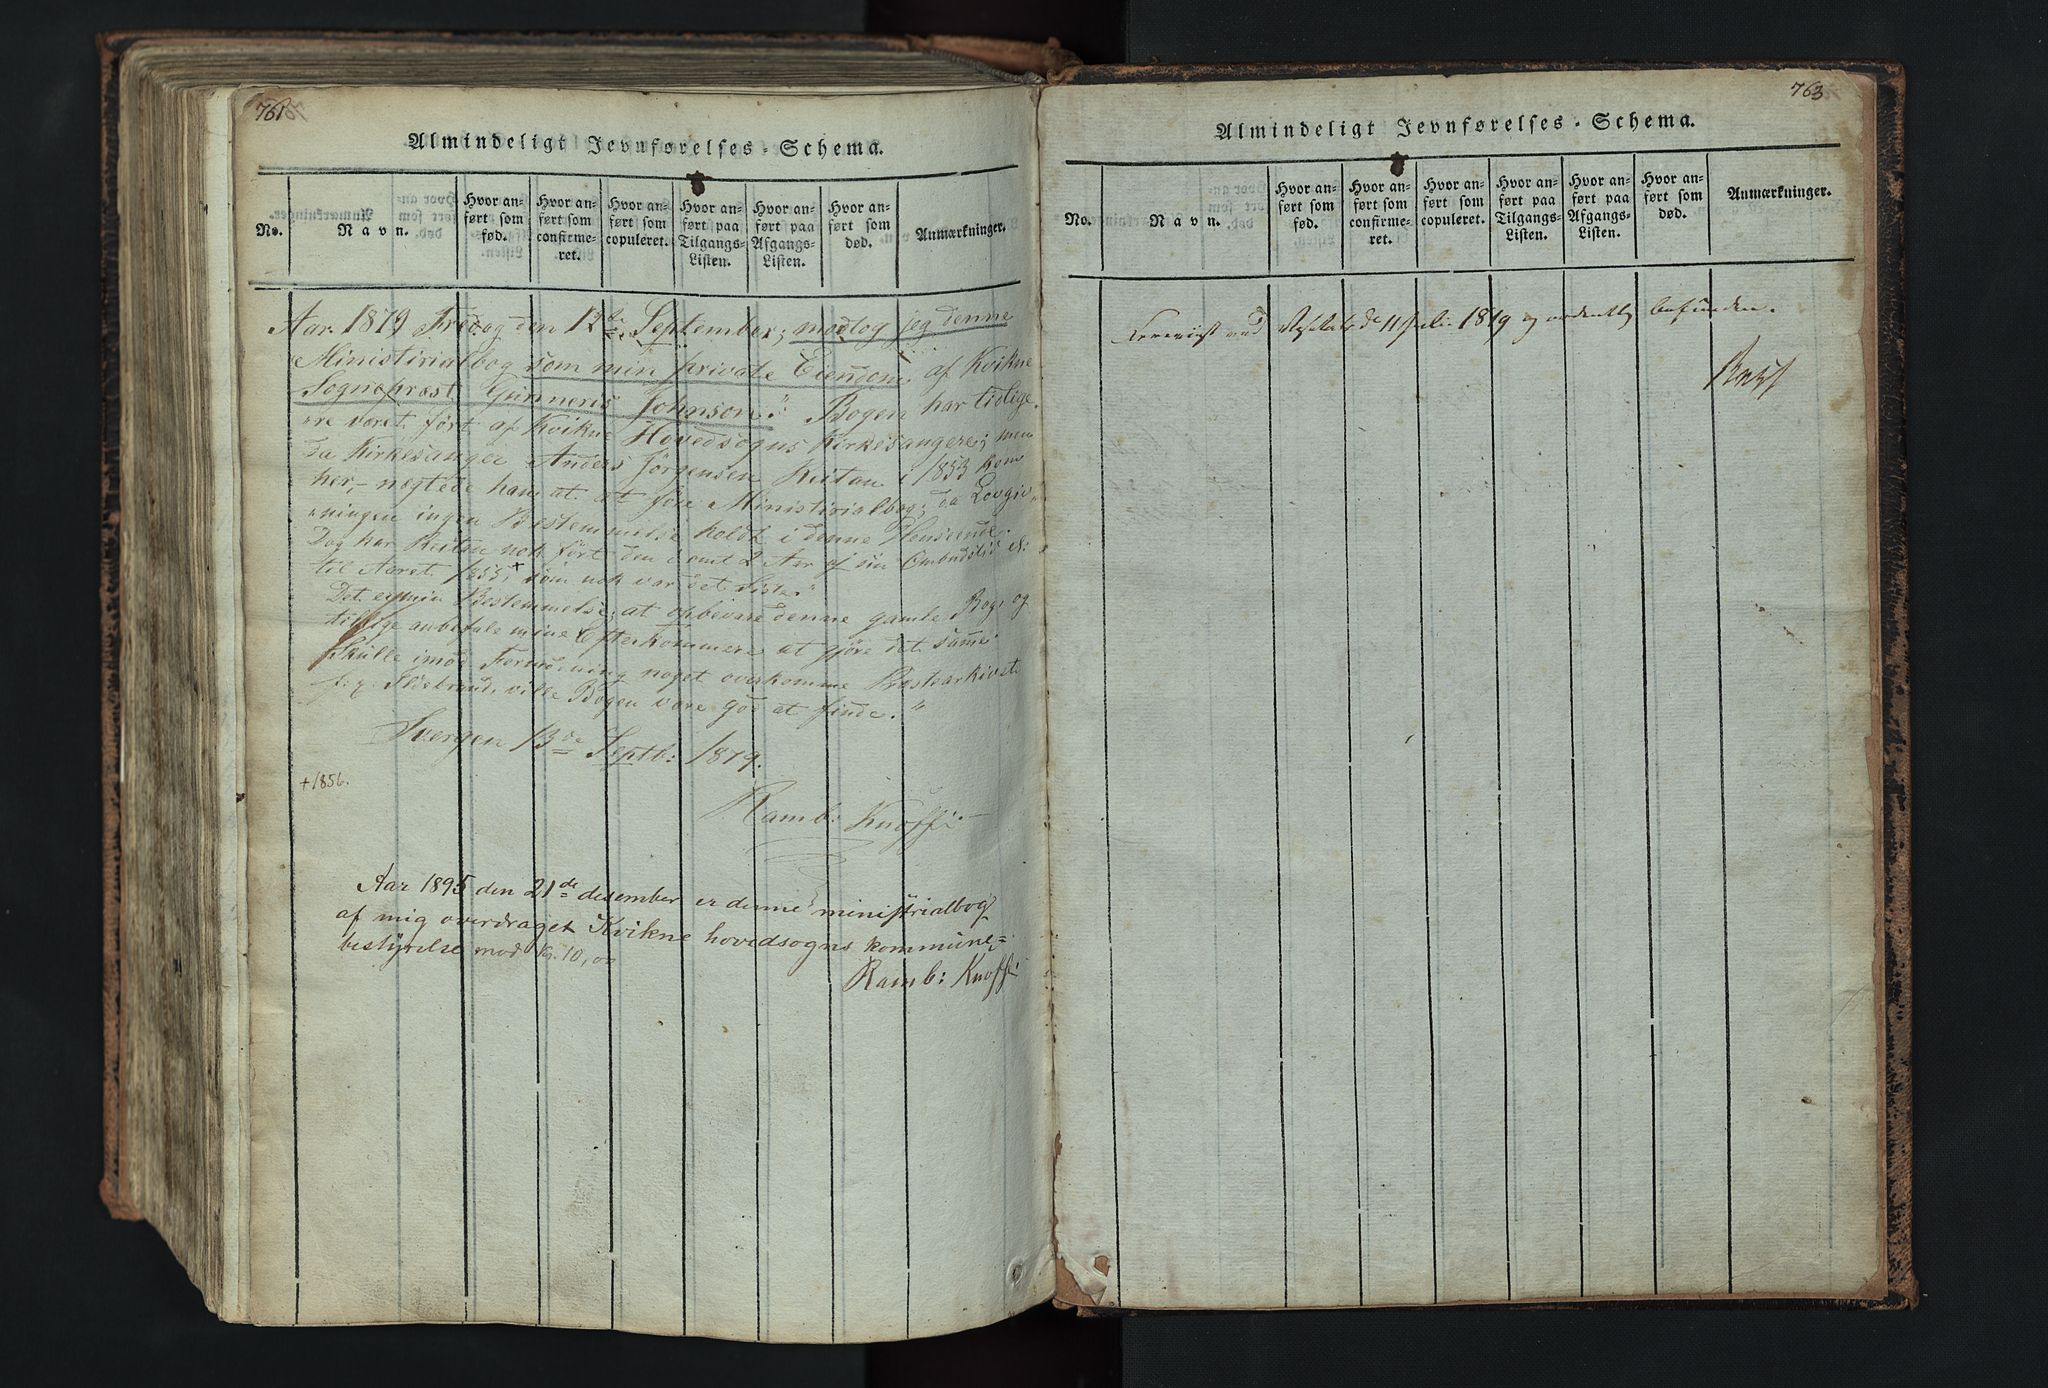 761
Almindeligt Jevnførelses-Schema.
No.
Navn.
Hvor an-
ført som
fød.
Hvor an-
ført som
confirme-
ret.
Hvor an-
ført som
copuleret.
Hvor an-
ført paa
Tilgangs-
Listen.
Hvor an-
ført paa
Afgangs-
Listen.
Hvor an-
ført som
død.
Anmærkninger.
Aar 1879 Fredag den 12te September; modtog jeg denne
Ministirialbog som min private Eiendom af Kvikne
Sogneprest Gunnerus Johnson." Bogen har tidlige-
re været ført af Kvikne Hovedsogns Kirkesangere; men
da Kirkesanger Anders Jørgensen Reitan i 1853 kom
her, negtede ham at at føre Ministirialbog; da Lovgiv-
ningen ingen Bestemmelse holdt i denne Henseende.
Dog har Reitan nok ført den i omt 2 Aar af sin Ombudstid
til Aaret 1855,+ som nok var det Sidste"
Det er min Bestemmelse, at opbevare denne gamle Bog, og
tillige anbefale mine Efterkommere at gjøre det samme.
Skulle imod Formodening noget overkomme Prestearkivet
f. x. Ildebrand, ville Bogen være god at finde."
Svergen 13de Septb: 1879.
+1856.
Ramb: Knoff
Aar 1895 den 21de desember er denne ministrialbog
af mig overdraget Kvikne hovedsogns kommune=
bestyrelse mod Kr. 10,00
Ramb: Knoff
763
Almindeligt Jevnførelses-Schema.
No.
Navn.
Hvor an-
ført som
fød.
Hvor an-
ført som
confirme-
ret.
Hvor an-
ført som
copuleret.
Hvor an-
ført paa
Tilgangs-
Listen.
Hvor an-
ført paa
Afgangs-
Listen.
Hvor an-
ført som
død.
Anmærkninger.
ved d 11 Juli 1819 og ordentlig befunden.